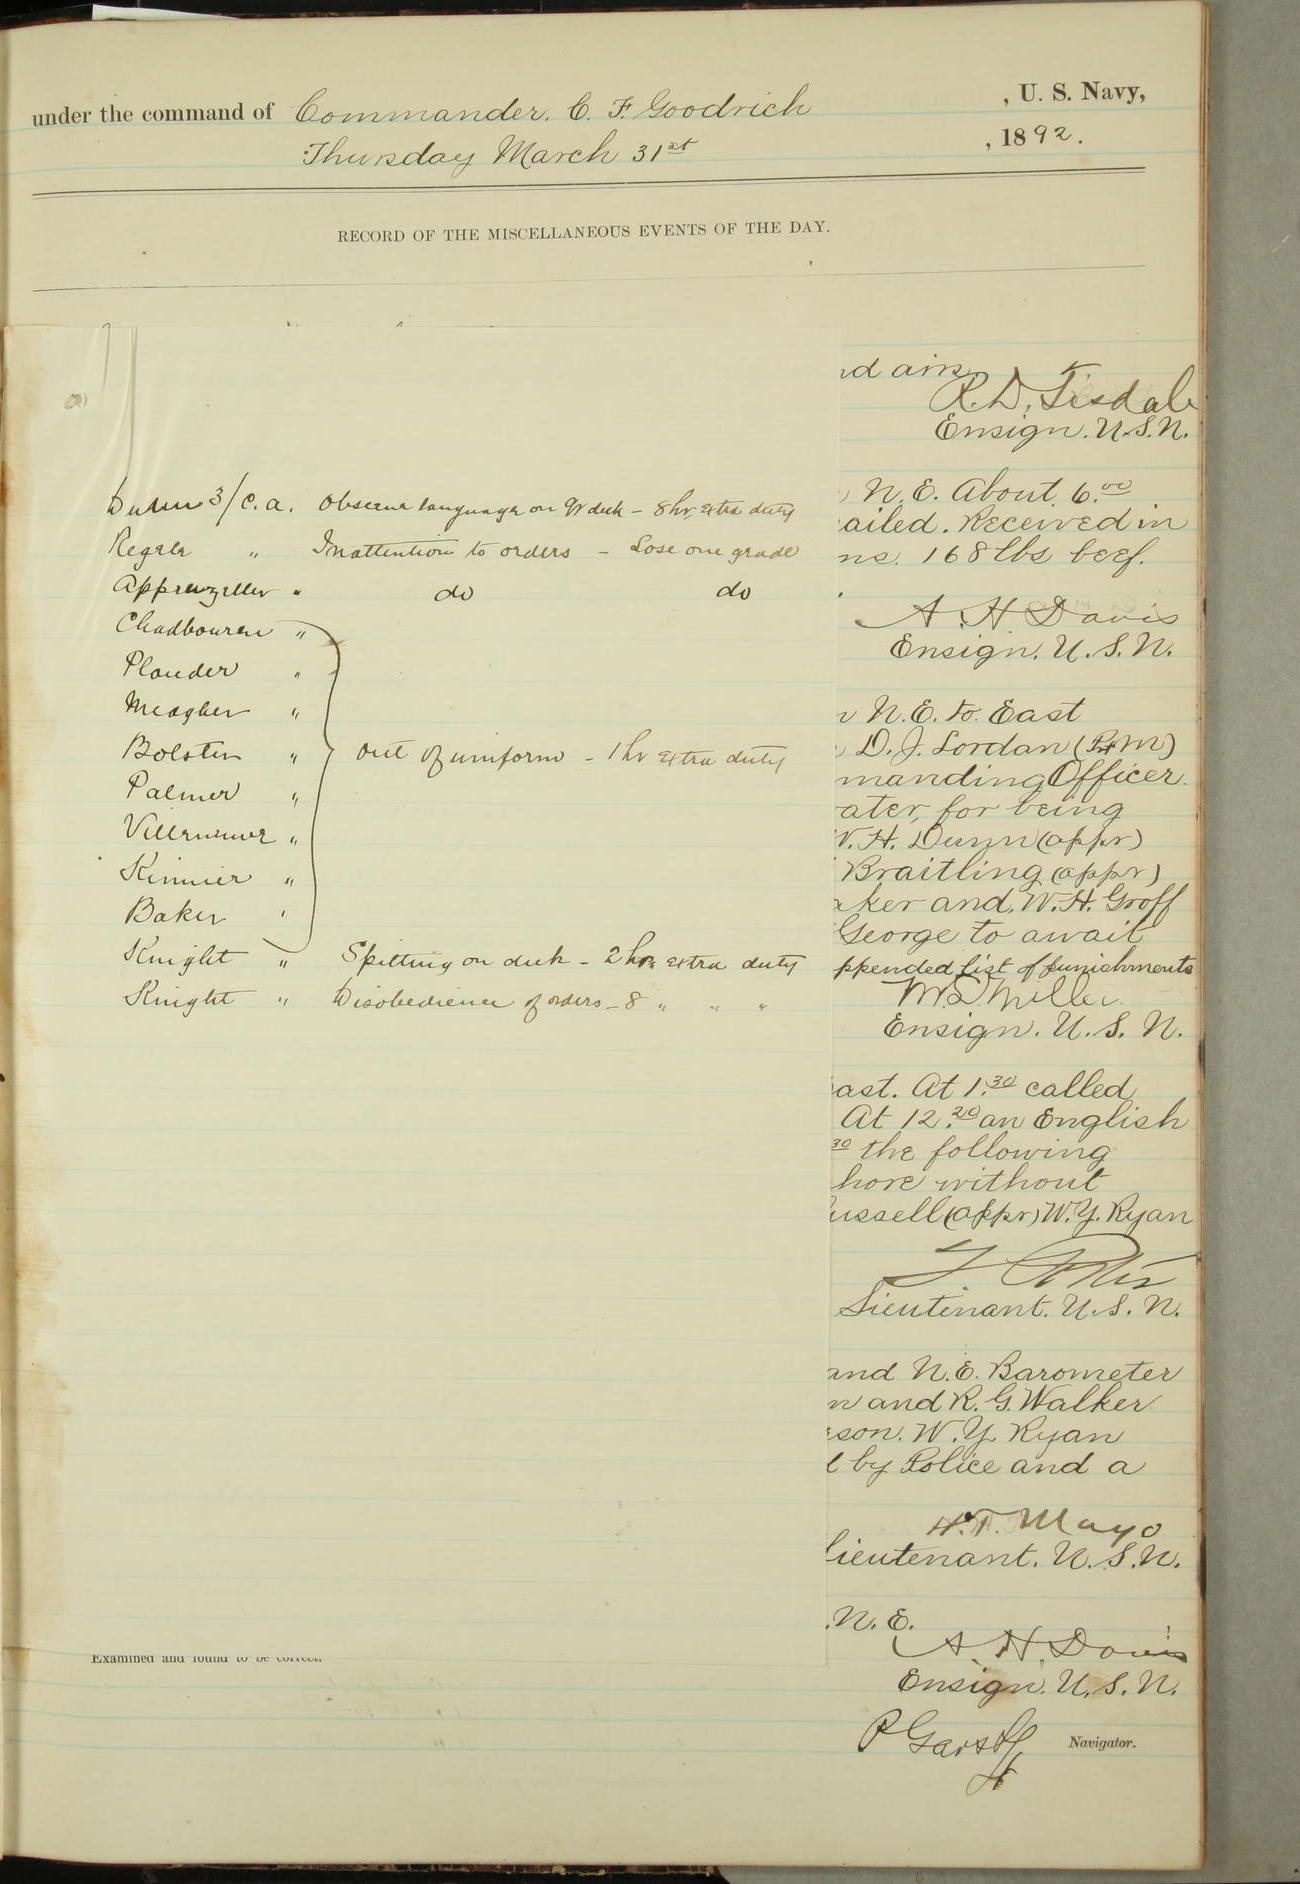 under the command of Commander. C. F. Goodrich , U. S. Navy,
Thursday March 31st , 1892.
RECORD OF THE MISCELLANEOUS EVENTS OF THE DAY.
Dunn 3/c. a. Obscene language on Qr deck - 8 hr, extra duty
Regele " Inattention to orders - Lose one grade
Appenzeller " do do
Chadbouren "
Plouder "
Meagher "
Bolsten "
out of uniform - 1 hr extra duty
Palmer "
"
Kinnier "
Baker "
Knight " Spitting on deck - 2 hrs extra duty
Knight " Disobedience of orders - 8 " " "
nd airs.
R. D. Tisdale
Ensign. U.S.N.
N.E. About 6.00
ailed. Received in
ns. 168 lbs beef.
A. H. Davis
Ensign. U.S.N.
N.E. to East
D. J. Lordan
manding Officer.
ater, for being
W. H. Dunn (appr)
Braitling (appr)
aker and W. H. Groff
George to await
ppended list of punishments
M. L. Miller.
Ensign. U. S. N.
ast. At 1.30 called
At 12.20 an English
30 the following
hore without
ussell (appr) W. Y. Ryan
Lieutenant. U. S. N.
and N.E. Barometer
n and R. G. Walker
son. W. Y. Ryan
by Police and a
H. T. Mayo
lieutenant. U. S. N.
.N.E.
A. H. Davis
Ensign. U. S. N.
Examined and found to be correct.
Navigator.